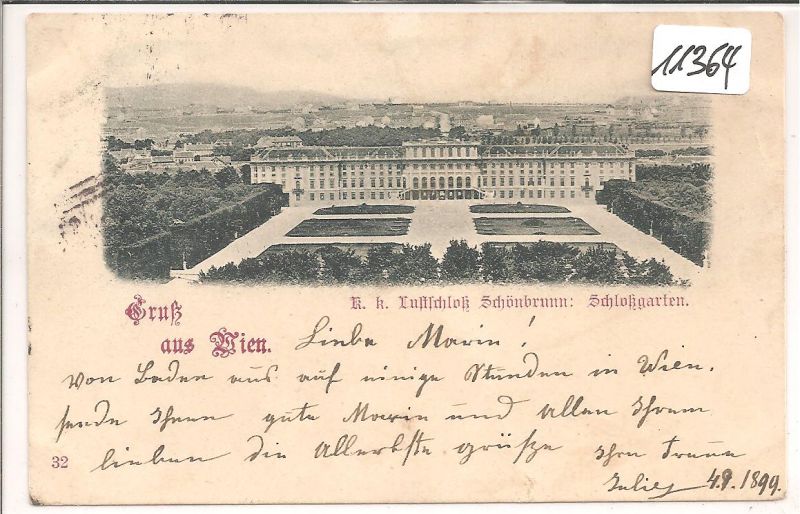 11364
K. k. Lustschloß Schönbrunn: Schloßgarten.
Gruß
aus Wien.
Liebe Marie!
Von Baden aus auf einige Stunden in Wien,
sende Ihnen gute Marie und allen Ihrem
lieben die Allerbste grüße Ihre Treue
32
4.9.1899.